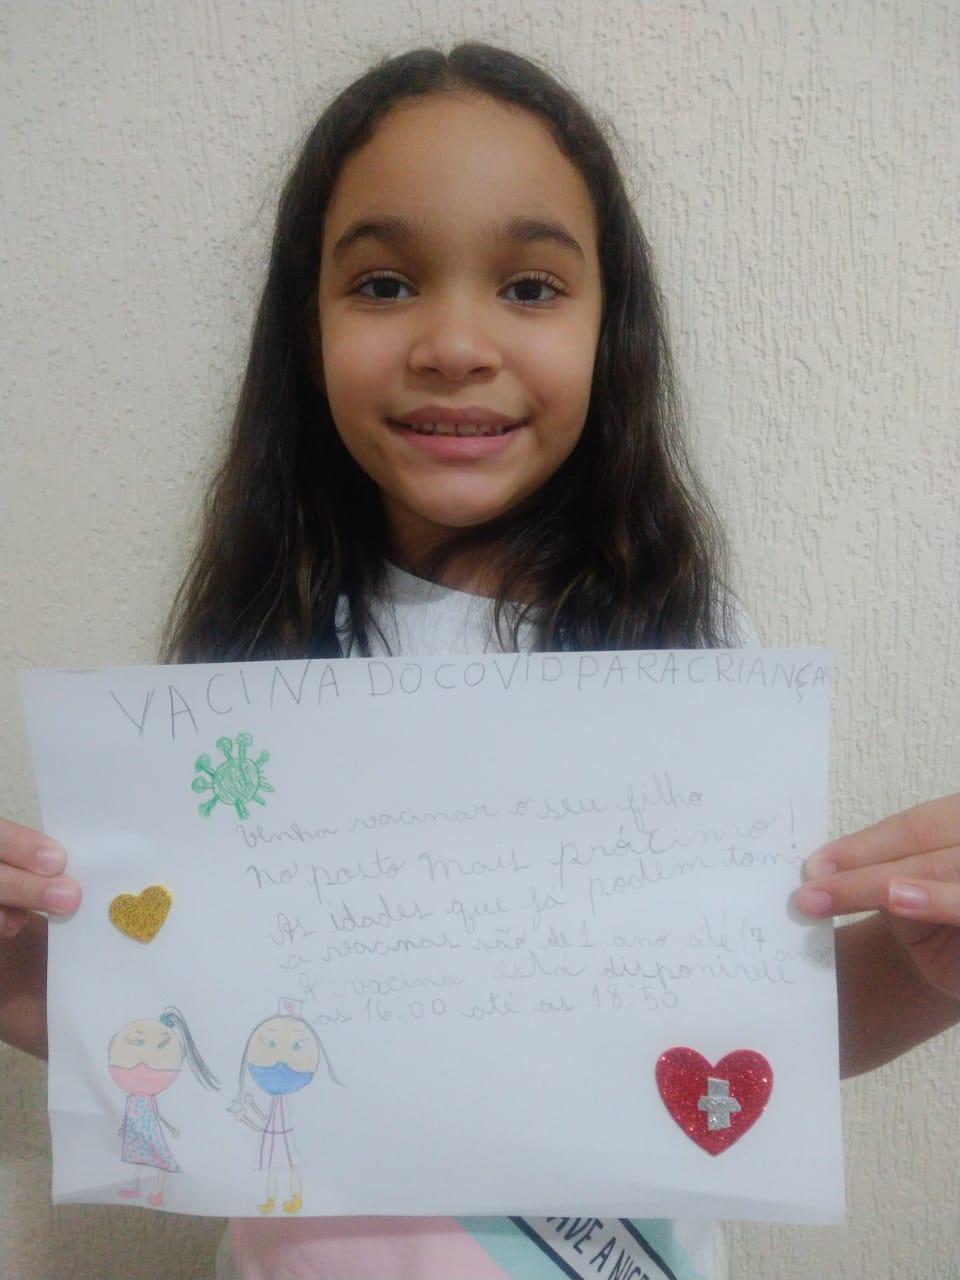 VACINA DO COVID PARA CRIANÇA
Venha vacinar o seu filho
no posto mais próximo!
As idades que já podem toma
a vacinas são de 1 ano até 17 anos
A vacina está disponivele
as 16:00 até as 18:50
AVE A NIC